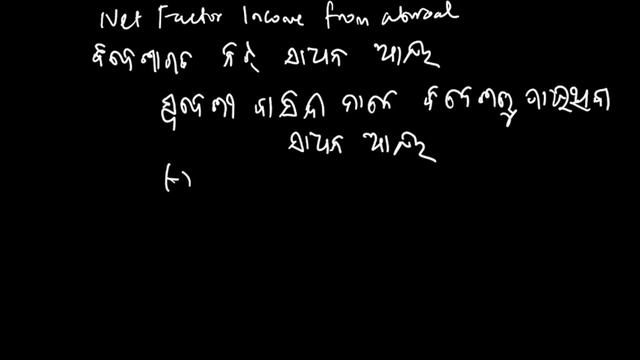 Net Factor Income from abroad
ବିଦେଶାଗତ ନିଟ୍ ସାଧନ ଆୟ
ସ୍ବଦେଶୀ ବାସିନ୍ଦା ମାନେ ବିଦେଶରୁ ପାଇଥିବା
ସାଧନ ଆୟ
(-)